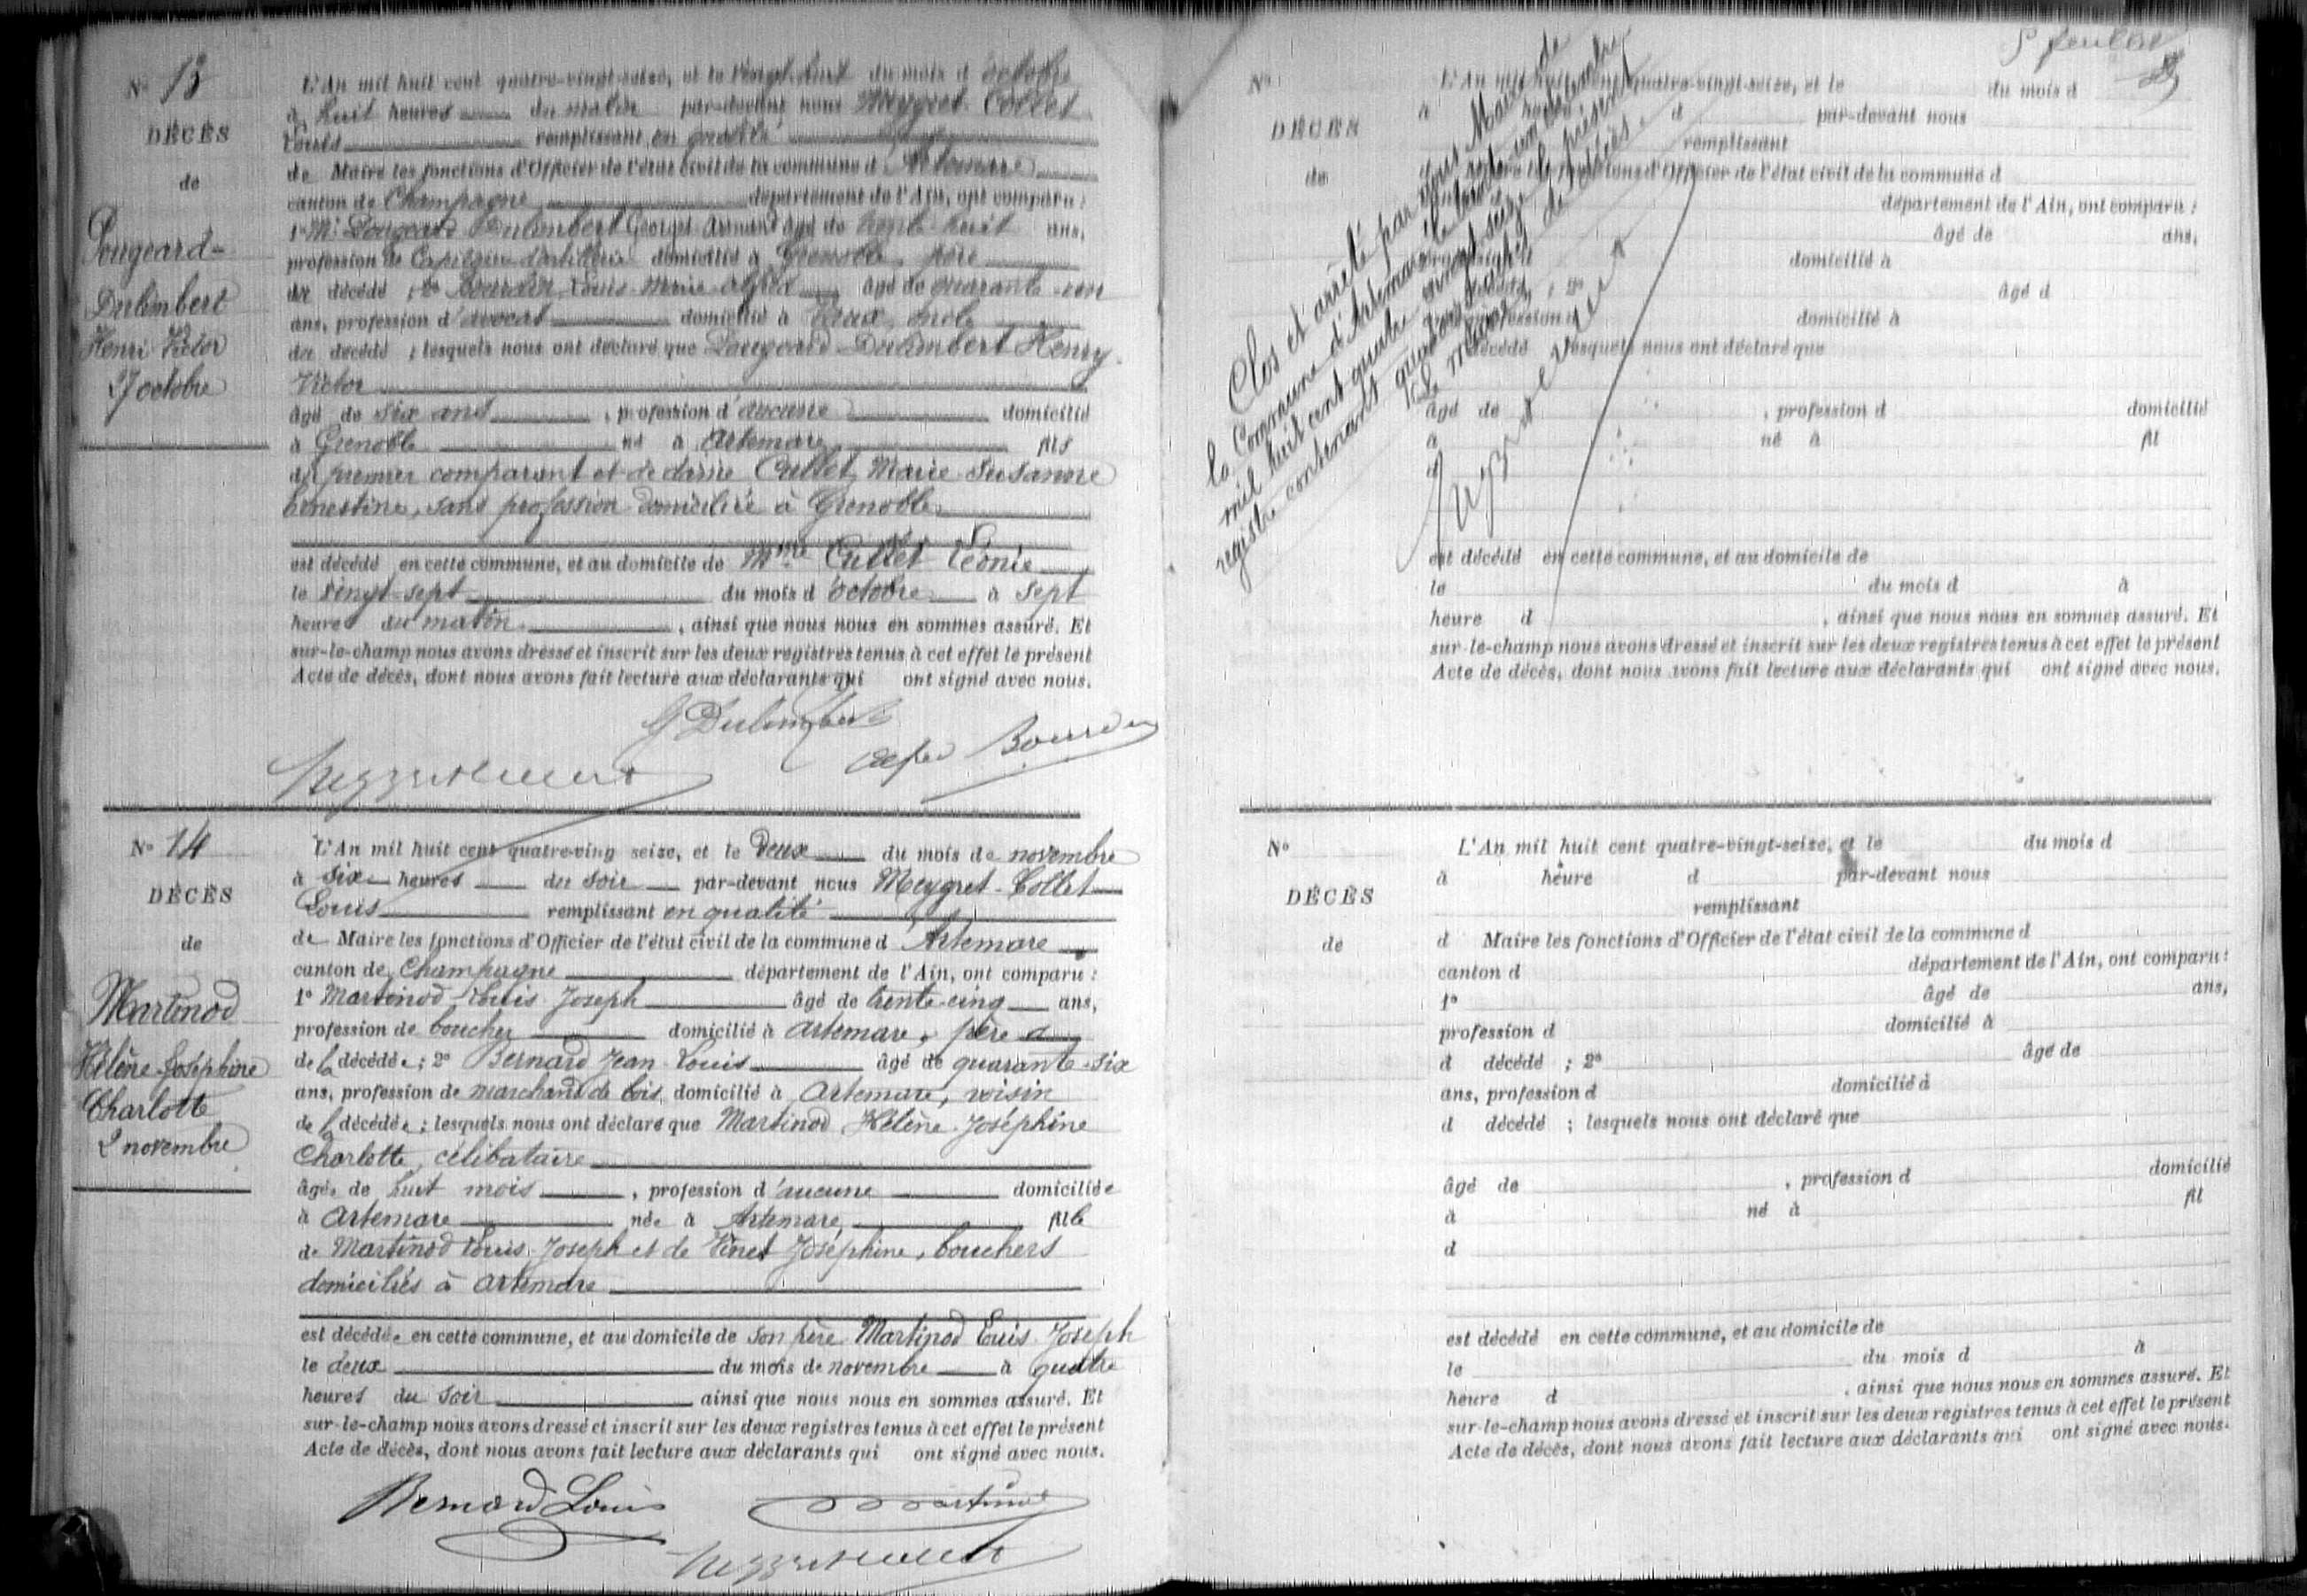 N° 13
DÉCÈS
de
Pougeard-
Dulimbert
Henri Victor
27 octobre
L'An mil huit cent quatre-vingt-seize, et le vingt-huit du mois d'octobre
à huit heures du matin par-devant nous Meygret-Collet
Louis remplissant en qualité
de Maire les fonctions d'Officier de l'état civil de la commune d'Artemare
canton de Champagne département de l'Ain, ont comparu :
1° Mr Pougeard Dulimbert Georges Armand âgé de trente-huit ans,
profession de Capitaine d'artillerie domicilié à Grenoble, père
du décédé ; 2° Bourdin Louis Marie Alfred âgé de quarante-
ans, profession d'avocat domicilié à
du décédé ; lesquels nous ont déclaré que Pougeard-Dulimbert Henry
Victor
âgé de six ans , profession d'aucune domicilié
à Grenoble né à Artemare fils
du premier comparant et de dame Cullet Marie Susanne
Ernestine, sans profession domiciliée à Grenoble
est décédé en cette commune, et au domicile de Mme Cullet Léonie
le vingt-sept du mois d'octobre à sept
heures du matin , ainsi que nous nous en sommes assuré. Et
sur-le-champ nous avons dressé et inscrit sur les deux registres tenus à cet effet le présent
Acte de décès, dont nous avons fait lecture aux déclarants qui ont signé avec nous.
G Dulimbert
Bourdin
N° 14
DÉCÈS
de
Martinod
Hélène Joséphine
Charlotte
2 novembre
L'An mil huit cent quatre-ving seize, et le deux du mois de novembre
à six heures du soir par-devant nous Meygret-Collet
Louis remplissant en qualité
de Maire les fonctions d'Officier de l'état civil de la commune d'Artemare
canton de Champagne département de l'Ain, ont comparu :
1° Martinod Louis Joseph âgé de trente-cinq ans,
profession de boucher domicilié à Artemare, père
de la décédée ; 2° Bernard Jean Louis âgé de quarante-six
ans, profession de marchand de bois, domicilié à Artemare, voisin
de la décédée ; lesquels nous ont déclaré que Martinod Hélène Joséphine
Charlotte, célibataire
âgée de huit mois , profession d'aucune domiciliée
à Artemare née à Artemare, fille
de Martinod Louis Joseph et de Vinet Joséphine, bouchers
domiciliés à Artemare
est décédée en cette commune, et au domicile de son père Martinod Louis Joseph
le deux du mois de novembre à quatre
heures du soir ainsi que nous nous en sommes assuré. Et
sur-le-champ nous avons dressé et inscrit sur les deux registres tenus à cet effet le présent
Acte de décès, dont nous avons fait lecture aux déclarants qui ont signé avec nous.
Bernard Louis
Martinod
5e feuillet
N°
DÉCÈS
de
L'An mil huit cent quatre-vingt-seize, et le du mois d
à heure d par-devant nous
remplissant
d Maire les fonctions d'Officier de l'état civil de la commune d
département de l'Ain, ont comparu :
âgé de ans,
domicilié à
décédé ; 2° âgé d
profession d domicilié à
décédé lesquels nous ont déclaré que
âgé de , profession d domicilié
à né à fil
d
est décédé en cette commune, et au domicile de
le du mois d à
heure d , ainsi que nous nous en sommes assuré. Et
sur-le-champ nous avons dressé et inscrit sur les deux registres tenus à cet effet le présent
Acte de décès, dont nous avons fait lecture aux déclarants qui ont signé avec nous.
Clos et arrêté par nous Maire de
la Commune d'Artemare le trente un décembre
mil huit cent quatre vingt seize le présent
registre contenant quatorze actes de décès.
Le Maire
N°
DÉCÈS
de
L'An mil huit cent quatre-vingt-seize, et le du mois d
à heure d par-devant nous
remplissant
d Maire les fonctions d'Officier de l'état civil de la commune d
canton d département de l'Ain, ont comparu :
1° âgé de ans,
profession d domicilié à
d décédé ; 2° âgé de
ans, profession d domicilié à
d décédé ; lesquels nous ont déclaré que
âgé de , profession d domicilié
à né à fil
d
est décédé en cette commune, et au domicile de
le du mois d à
heure d , ainsi que nous nous en sommes assuré. Et
sur-le-champ nous avons dressé et inscrit sur les deux registres tenus à cet effet le présent
Acte de décès, dont nous avons fait lecture aux déclarants qui ont signé avec nous.